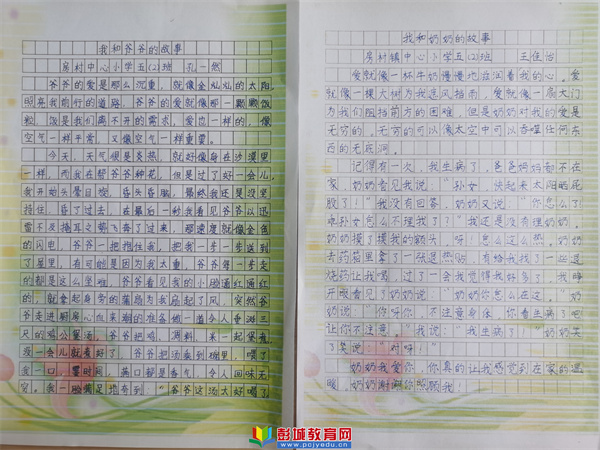 我和爷爷的故事
房村中心小学五(2)班 孔一然
爷爷的爱是那么沉重，就像金灿灿的太阳，
照亮我前行的道路，爷爷的爱就像那一颗颗饭
粒，饭是我们不离开的需求，爱也一样的，像
空气一样平常，又像空气一样重要。
今天，天气很是炎热，就好像身在沙漠里
一样，而我在帮爷爷种花，但是过了好一会儿
我开始头晕目眩，昏头昏脑，最终我还是没坚
持住，昏了过去，在最后一秒我看见爷爷以迅
雷不及掩耳之势飞奔了过来，那速度就像金色
的闪电，爷爷一把抱住我，把我一步一步送到
了屋里，有可能是因为我太重，爷爷每一步走
的都是这么坚难，爷爷见我的小脸通红通红
的，就拿起身旁的蒲扇为我扇起了风，突然爷
爷走进厨房心血来潮的准备做一道令人垂涎三
尺的鸡公煲汤，爷爷把鸡，调料，来一起煲煮，
没一会儿就煮好了，爷爷把汤盛到碗里，喂了
我一口，霎时间，满口都是香气，令人回味无
穷。我一脸满足地夸到：“爷爷这汤太好喝了
我和奶奶的故事
房村镇中心小学五(2)班 王佳怡
爱就像一杯牛奶慢慢地滋润着我的心。爱
就像一棵大树为我遮风挡雨，爱就像一扇大门
为我们阻挡前方的困难，但是奶奶对我的爱是
无穷的，无穷的可以像太空中可以吞噬任何东
西的无底洞。
记得有一次，我生病了，爸爸妈妈都不在
家，奶奶看见我说：“孙女，快起来太阳晒屁
股了！”我没有回答，奶奶又说：“你怎么了
乖孙女怎么不理我了？”我还是没有理奶奶，
奶奶摸了摸我的额头，呀！怎么这么热，奶奶
去药箱里拿了一张退热贴，有给我找了一些退
烧药让我喝，过了一会我觉得我好多了，我睁
开眼看见了奶奶说：“奶奶你怎么在这。”奶
奶说：“你呀你，不注意身体，你看生病了吧
让你不注意。”我说：“我生病了！”奶奶笑
了笑说：“对呀！”
奶奶我爱你，你真的让我感觉到在家的温
暖，奶奶谢谢你照顾我！
彭城教育网
www.pcjyedu.cn